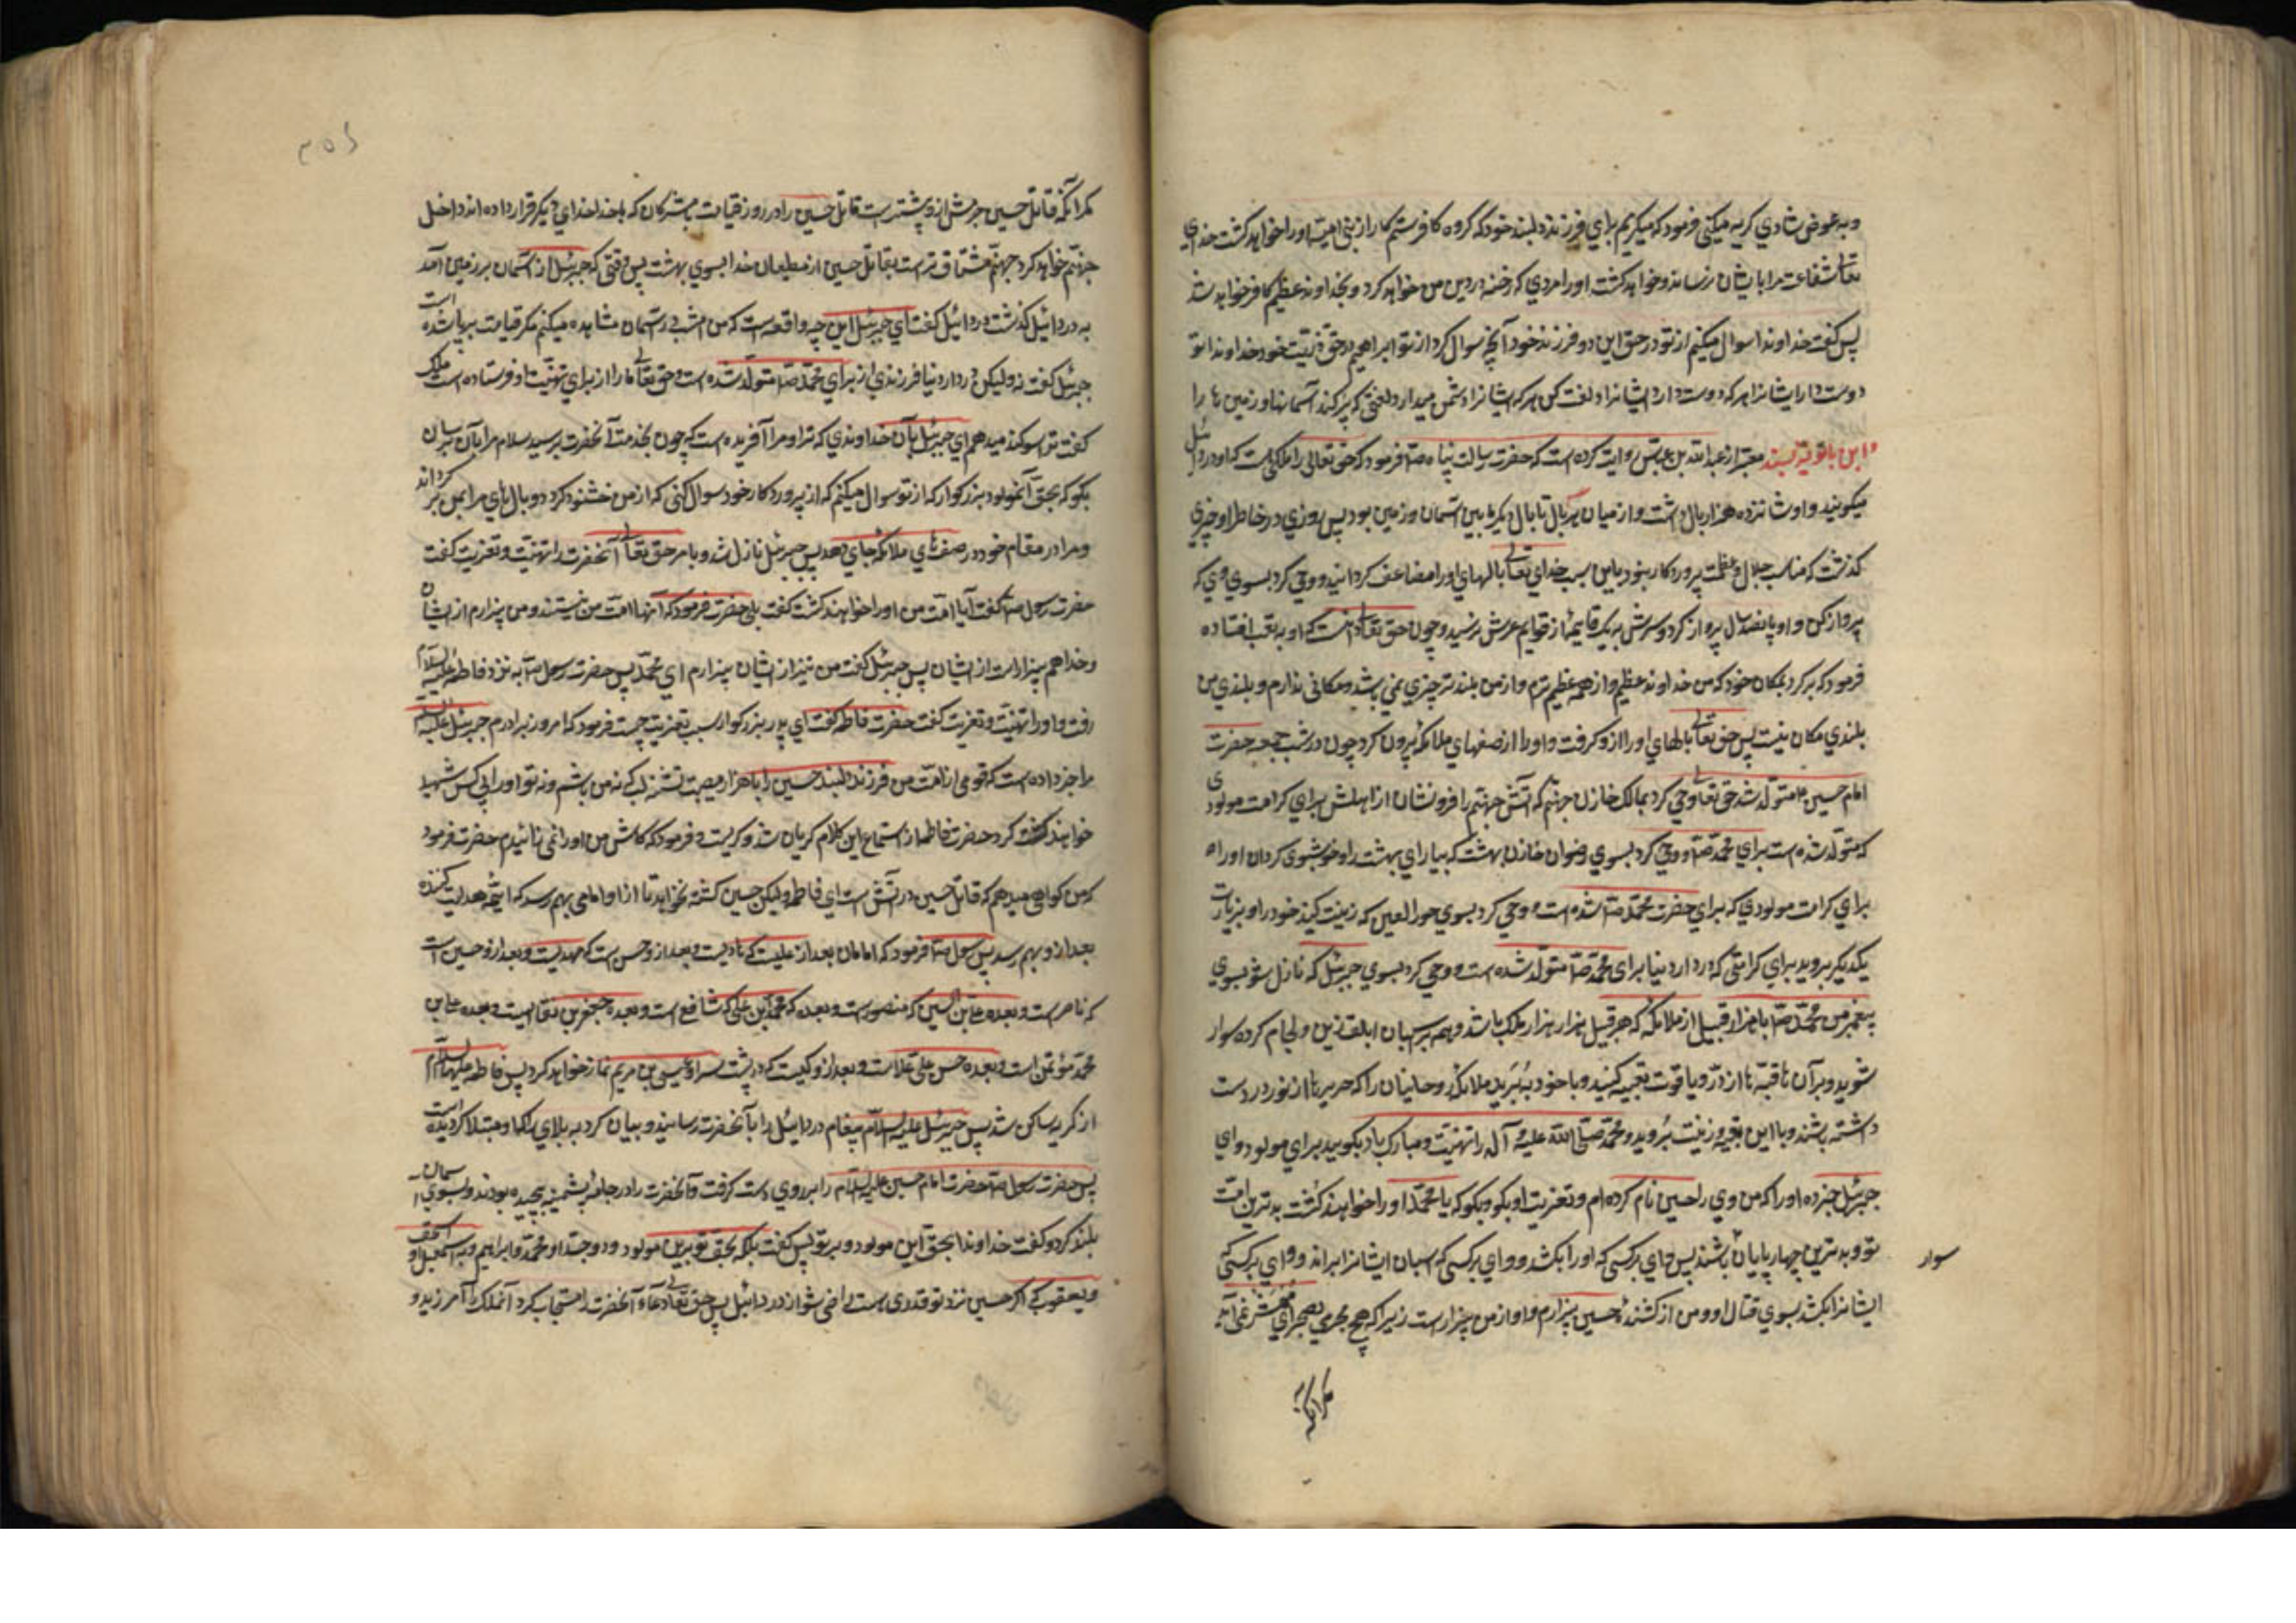 و به عوض شادي كريه ميكني فرمود كه ميكريم براي فرزند دلبند خود كه كروه كافر ستمكار از بني اميه او را خواهند كشت خداي
تعالى شفاعت مرا بايشان نرساند و خواهد كشت او را مردي كه رخنه در دين من خواهد كرد و بخداوند عظيم كافر خواهد شد
پس كفت خداوندا سوال ميكنم از تو در حق اين دو فرزند خود آنچه سوال كرد از تو ابراهيم در حق ذريت خود خداوندا تو
دوست دار ايشانرا هر كه دوست دارد ايشانرا و لعنت كن هر كه ايشانرا دشمن ميدارد لعنتي كه پر كند آسمانها و زمين ها را
و ابن بابويه بسند معتبر از عبدالله بن عباس روايت كرده است كه حضرت رسالت پناه صلّا فرمود كه حق تعالى را ملكي است كه او را دردائيل
ميكويند و او شانزده هزار بال داشت و از ميان هر بال تا بال ديكر ما بين آسمان و زمين بود پس روزي در خاطر او چيزي
كذشت كه مناسب جلال و عظمت پروردكار نبود باين سبب خداي تعالى بالهاي او را مضاعف كردانيد و وحي كرد بسوي وي كه
پرواز كن و او پانصد سال پرواز كرد و سرش به يك قايمه از قوايم عرش نرسيد و چون حق تعالى دانست كه او به تعب افتاده
فرمود كه بركرد بمكان خود كه من خداوند عظيم و از همه عظيم ترم و از من بلند تر چيزي نمي باشد و مكاني ندارم و بلندي من
بلندي مكان نيست پس حق تعالى بالهاي او را ازو كرفت و او را از صفهاي ملائكه بيرون كرد چون در شب جمعه حضرت
امام حسين ع متولد شد حق تعالى وحي كرد بمالك خازن جهنم كه آتش جهنم را فرو نشان از اهلش براي كرامت مولودي
كه متولد شده است براي محمد صلّا و وحي كرد بسوي رضوان خازن بهشت كه بياراي بهشت را و خوشبوي كردان او را
براي كرامت مولودي كه براي حضرت محمد صلّا شده است و وحي كرد بسوي حور العين كه زينت كنيد خود را و بزيارت
يكديكر برويد براي كرامتي كه در دار دنيا براي محمد صلّا متولد شده است و وحي كرد بسوي جبرئيل كه نازل شو بسوي
پيغمبر من محمد صلّا با هزار قبيل از ملائكه كه هر قبيل هزار هزار ملك باشد و همه بر اسبان ابلق زين و لجام كرده سوار
شويد و بر آن ها قبه ها از در و ياقوت تعبيه كنيد و با خود ببريد ملائكه روحانيان را كه حربه ها از نور در دست
داشته باشند و با اين تعبيه و زينت برويد و محمد صلّى الله عليه و آله را تهنيت و مبارك باد بكوييد براي مولود و اي
جبرئيل خبر ده او را كه من وي را حسين نام كرده ام و تعزيت او بكو و بكو كه يا محمد او را خواهند كشت بدترين امت
تو و بدترين چهار پايان باشند پس واي بر كسي كه او را بكشد و واي بر كسي كه اسبان ايشانرا براند و واي بر كسي كه
سوار
ايشانرا بكشد بسوي قتال او و من از كشنده حسين بيزارم و او از من بيزار است زيرا كه هيچ مجرمي بصحراي محشر نمي آيد
مكر آنكه
مكر آنكه قاتل حسين جرمش از و پشتر است قاتل حسين را در روز قيامت با مشركان كه با خدا خداي ديكر قرار داده اند داخل
جهنم خواهد كرد جهنم مشتاق تر است بقاتل حسين از مطيعان خدا بسوي بهشت پس وقتي كه جبرئيل از آسمان بر زمين آمد
به دردائيل كذشت دردائيل كفت اي جبرئيل اين چه واقعه است كه من امشب در آسمان مشاهده ميكنم مكر قيامت برپا شده است
جبرئيل كفت نه وليكن در دار دنيا فرزندي از براي محمد صلّا متولد شده است و حق تعالى ما را از براي تهنيت او فرستاده است ملك
كفت ترا سوكند ميدهم اي جبرئيل بآن خداوندي كه ترا و مرا آفريده است كه چون بخدمت آنحضرت برسيد سلام مرا بآن برسان
بكو كه بحق آن مولود بزركوار كه از تو سوال ميكنم كه از پروردكار خود سوال كني كه از من خشنود كردد و بال هاي مرا بمن بر كرداند
و مرا در مقام خود در صف هاي ملائكه جاي دهد پس جبرئيل نازل شد و بامر حق تعالى آنحضرت را تهنيت و تعزيت كفت
حضرت رسول صلّا كفت آيا امت من او را خواهند كشت كفت بلي حضرت فرمود كه آنها امت من نيستند و من بيزارم از ايشان
و خدا هم بيزار است از ايشان پس جبرئيل كفت من نيز از ايشان بيزارم اي محمد پس حضرت رسول صلّا به نزد فاطمه عليه السلام
رفت و او را تهنيت و تعزيت كفت حضرت فاطمه كفت اي پدر بزركوار سبب تعزيت چيست فرمود كه امروز برادرم جبرئيل عليه السلام
مرا خبر داده است كه قومي از امت من فرزند دلبند حسين را با هزار مصيبت تشنه لب كه نه من باشم و نه تو او را بي كس شهيد
خواهند كرد حضرت فاطمه از استماع اين كلام كريان شد و كريست و فرمود كه كاش من او را نمي زائيدم حضرت فرمود
كه من كواهي ميدهم كه قاتل حسين در آتش است اي فاطمه وليكن حسين كشته نخواهد تا از او امامي بهم رسد كه ائمه هدايت كننده
بعد ازو بهم رسد پس رسول صلّا فرمود كه امامان بعد از عليست كه هاديست و بعد ازو حسن است كه مهديست و بعد ازو حسين است
كه ناصر است و بعده علي بن الحسين كه منصور است و بعده كه محمد بن علي كه شافع است و بعده جعفر بن نفاعيست و بعده علي بن
محمد مؤتمن است و بعده حسن علي علامست و بعد ازو كيست كه در پشت سر او عيسى بن مريم نماز خواهد كرد پس فاطمه عليها السلام
از كريه ساكن شد پس جبرئيل عليه السلام پيغام دردائيل را بآنحضرت رسانيد و بيان كرد به بلاي كه او مبتلا كرديده است
پس حضرت رسول صلّا حضرت امام حسين عليه السلام را بر روي دست كرفت و آنحضرت را در جامه پشمينه پيچيده بودند و بسوي آسمان
بلند كرد و كفت خداوندا بحق اين مولود و بر تو پس كفت بلكه بحق تو برين مولود و و جد او محمد و ابراهيم و به اسمعيل و اسحق
و يعقوب كه اكر حسين نزد تو قدري هست راضي شو از دردائيل پس حق تعالى دعاء آنحضرت را مستجاب كرد آنملك را آمرزيد و